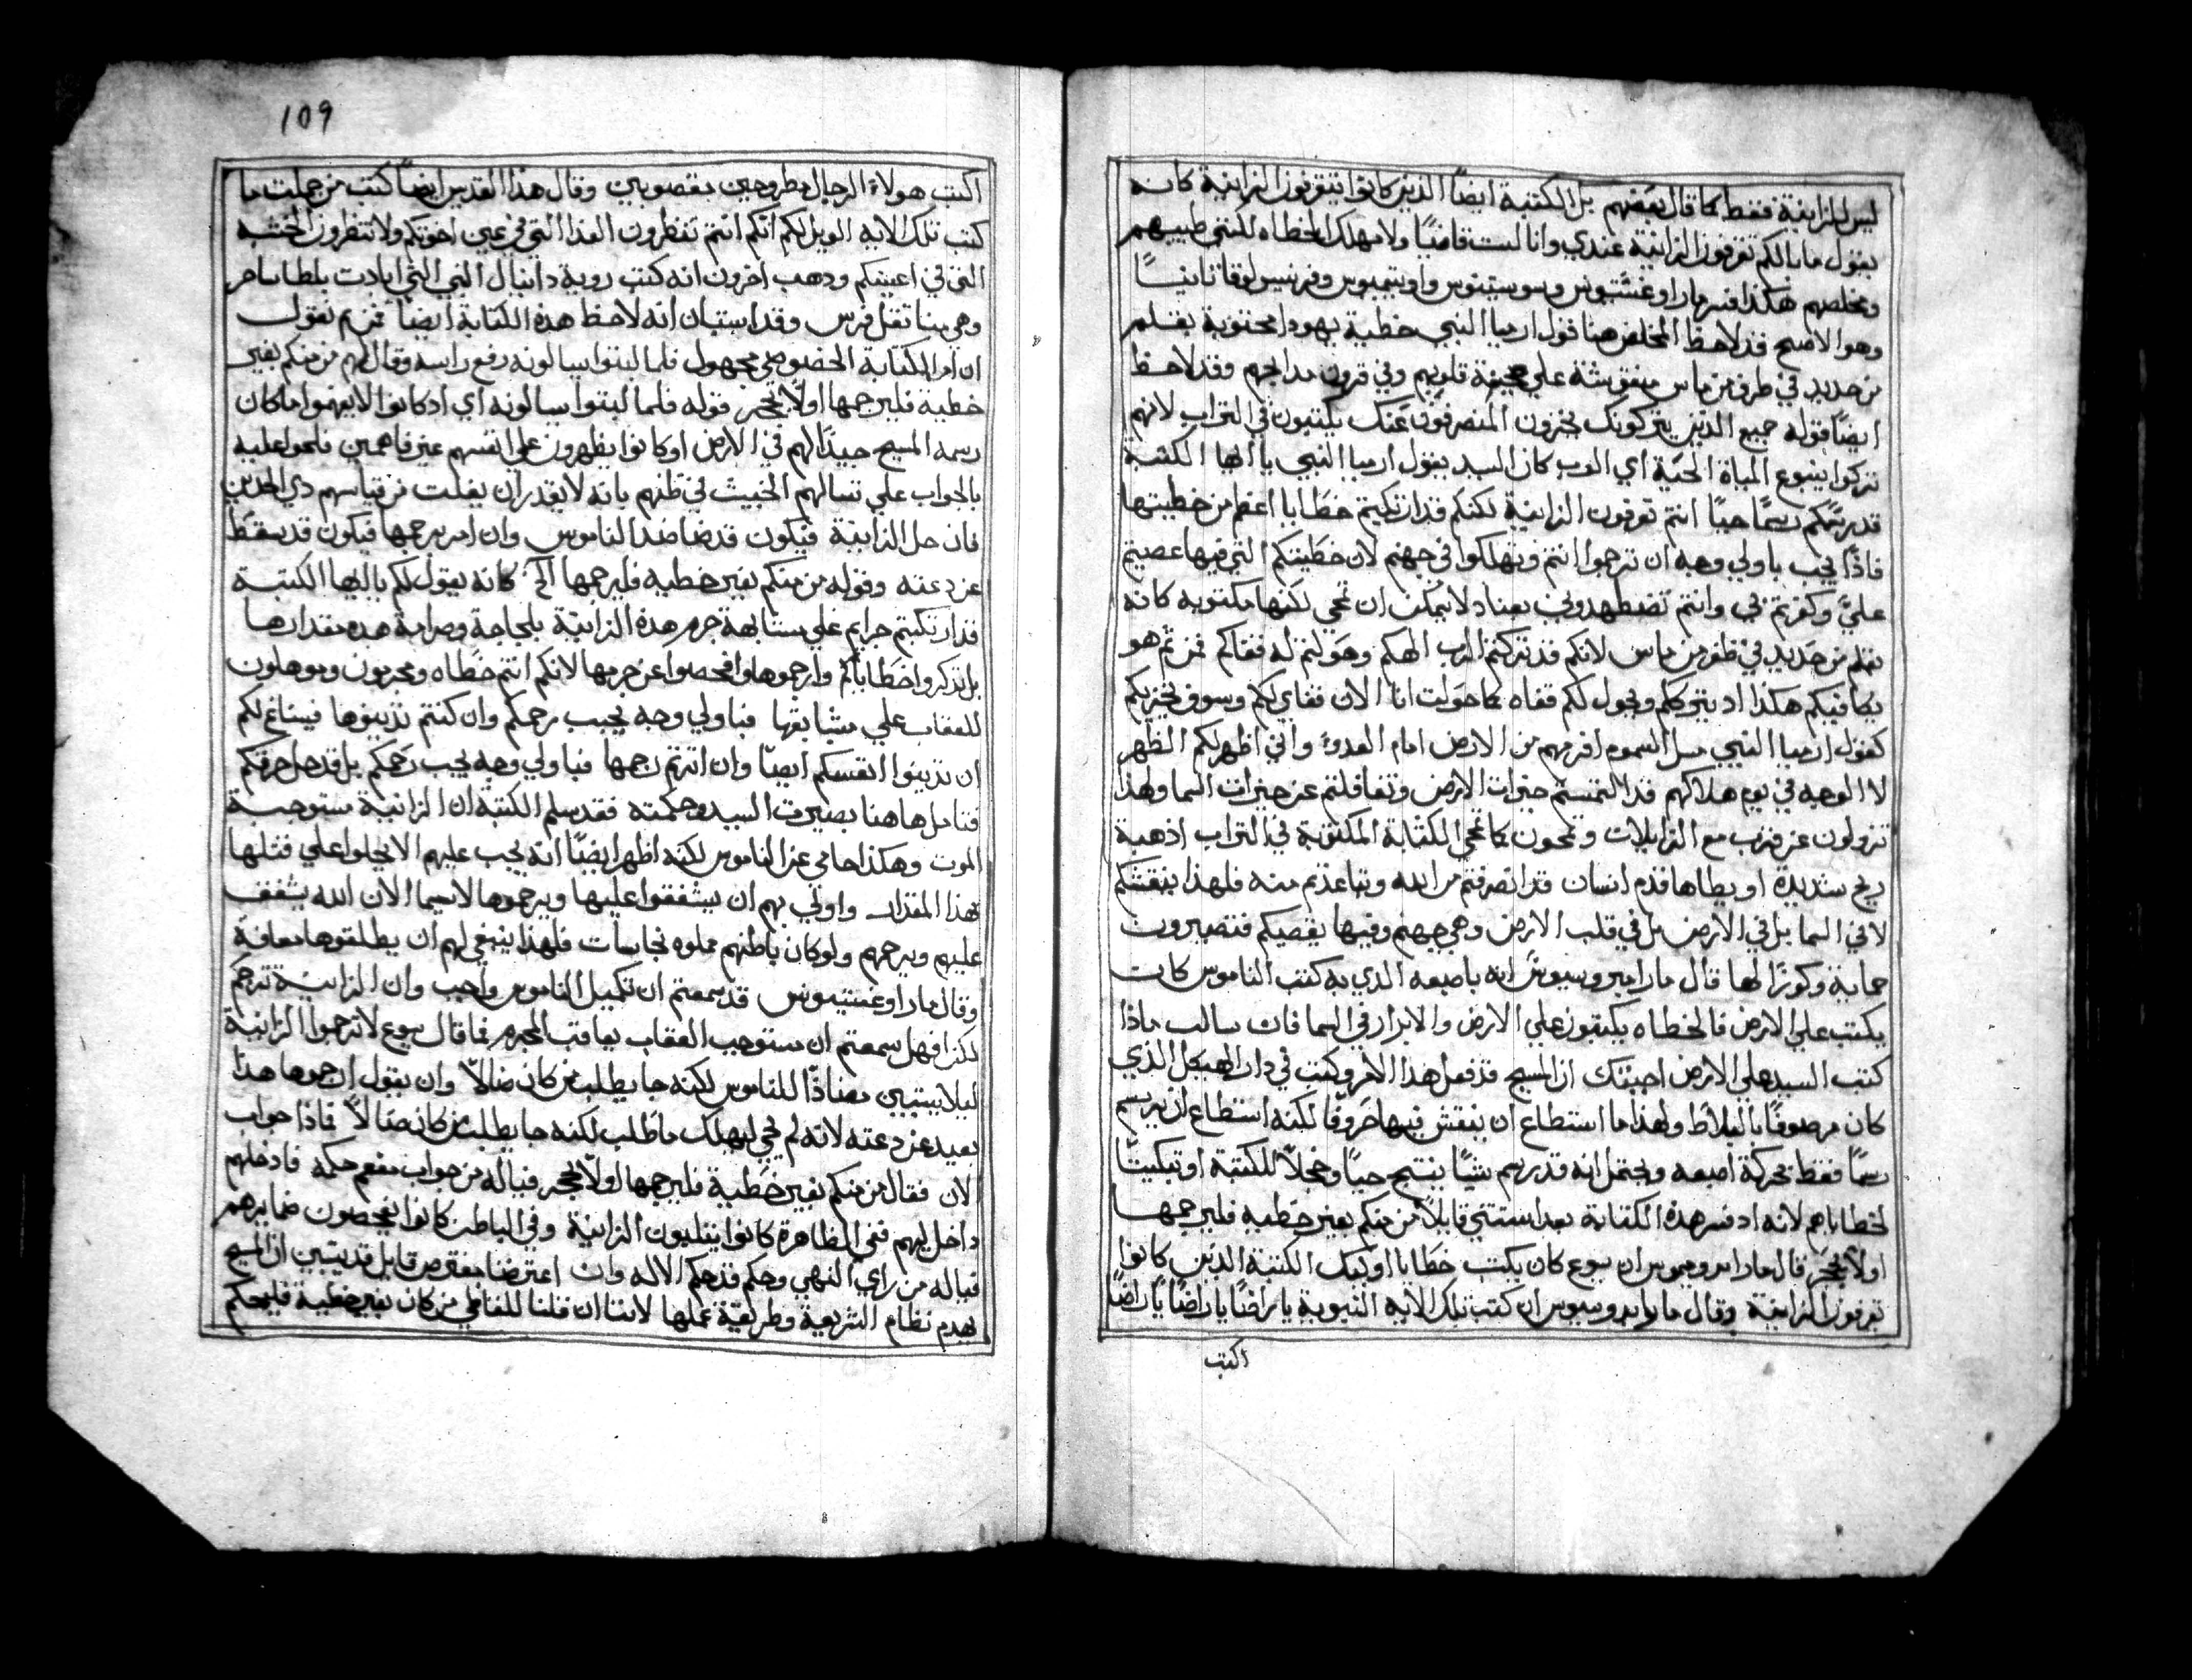 ليس للزانية فقط كما قال بعضهم بل الكتبة ايضاً الذين كانوا يتقرفون الزانية كانه
يقول ما بالكم تقرفون الزانية عندي وانا لست قاضيًا ولا مهلك الخطاه لكنني طبيبهم
ومخلصهم هكذا فسر مار اوغسّتيونس وفرنسيس لوقا ثانيًا
وهو الاصح قد لاحظ المخلص هنا قول ارميا النبي خطية يهودا مكتوبة بقلم
من حديد في ظفر من ماس منقوشة علي صحيفة قلوبهم وفي قرون مدابحهم وقد لاحظ
ايضاً قوله جميع الذين يتركونك يخزون المنصرفون عنك يكتبون في التراب لانهم
تركوا ينبوع المياة الحيّة اي الرب كان السيد يقول ارميا النبي يا ايها الكتبة
قد رسمكم رسمًا حيًا انتم تقرفون الزانية لكنكم قد ارتكبتم خطايا اعظم من خطيتها
فاذًا يجب باولي وجه ان ترجموا انتم وتهلكوا في جهنم لان خطيتكم التي فيها عصيتم
عليَّ وكفرتم بي وانتم تضطهدوني بعناد لا يمكن ان تمحي لكنها مكتوبه كانه
بقلم من حديد في ظفر من ماس لانكم قد تركتم الرب الهكم وحولتم له قفاكم فمن ثم هو
يكافيكم هكذا اد يترككم ويحول لكم قفاه كما حولت انا الان قفاي لكم وسوف يخزيكم
كقول ارميا النبي مثل السموم افرقهم من الارض امام العدو واني اظهر لكم الظهر
لا الوجه في يوم هلاكهم قد التمستم خيرات الارض وتغافلتم عن خيرات السما ولهذا
تزولون عن قرب مع الزايلات وتمحون كما تمحي الكتابة المكتوبة في التراب اذ هبة
ريح شديدة او يطاها قدم انسان قد انصرفتم من الله وتباعدتم منه فلهذا ينقشكم
لا في السما بل في الارض بل في قلب الارض وهي جهنم وفيها يقصيكم فتصيرون
حماية وكورًا لها قال مار امبروسيوس انه باصبعه الذي به كتب الناموس كان
يكتب علي الارض فالخطاه يكتبون علي الارض والابرار في السما فان سالت ماذا
كتب السيد علي الارض اجبتك ان المسيح قد فعل هذا الامر وكتب في دار الهيكل الذي
كان مرصوفًا بالبلاط ولهذا ما استطاع ان ينقش فيها حروفًا لكنه استطاع ان يرسم
رسمًا فقط بحركة اصبعه ويحتمل انه قد رسم شيًا ينتج حيًا وخجلاً للكتبة او تبكيتًا
لخطاياهم لانه اد فسر هذه الكتابة بعد استتني قايلاً من منكم بغير خطيه فليرجمها
اولاً بحجر قال مار ايرونيموس ان يسوع كان يكتب خطايا اوليك الكتبة الذين كانوا
تقرفون الزانية وقال مار امبروسيوس ان كتب تلك الايه النبوية يا راضًا يا راضًا يا راضًا
اكتب
109
اكتب هولاء الرجال مطروحين بقصوبين وقال هذا القديس ايضاً كتب من جملت ما
كتب تلك الايه الويل لكم انكم انتم تنظرون القذا التي في عين اخوتكم ولا تنظرون الخشبه
التي في اعينكم ودهب اخرون انه كتب روية دانيال النبي
وهي منا تقل فرس وقد استبان انه لاحظ هذه الكتابة ايضاً فمن ثم نقول
ان امر الكتابة الخصوصي مجهول فلما لبتوا يسالونه رفع راسه وقال لهم من منكم بغير
خطية فليرجمها اولاً بحجر قوله فلما لبتوا يسالونه اي اد كانوا لا يفهموا ما كان
رسمه المسيح جيدًا لهم في الارض او كانوا يظهرون علي انفسهم غير فاهمين فلحوا عليه
بالجواب علي تسالهم الخبيث في ظنهم بانه لا يقدر ان يفلت من قياسهم دي الحدين
فان حل الزانية فيكون قد ضاضد الناموس وان امر برجمها فيكون قد سقط
عن دعته وقوله من منكم بغير خطيه فليرجمها الخ كانه يقول لكم يا ايها الكتبة
قد ارتكبتم جرايم علي مشابهة جرم هذه الزانيّة بلجاجة وصرامة هده مقدارها
بل تدكروا خطاياكم وارجموها وافحصوا عن جرمها لانكم انتم خطاه ومجربون وموهلون
للعقاب علي مشابهتها فباولي وجه يجب رجمكم وان كنتم تدينوها فينساغ لكم
ان تدينوا انفسكم ايضًا وان اثرتم رجمها فباولي وجه يجب رجمكم بل قد حل حرقكم
فتامل هاهنا بصيرة السيد وحكمته فقد سلم الكتبة ان الزانية مستوجبة
الموت وهكذا حامي عن الناموس لكنه اظهر ايضًا انه يجب عليهم الا يحلوا علي قتلها
بهذا المقدار واولي بهم ان يشفقوا عليها ويرحموها لا سيما الان الله يشفق
عليهم ويرحمهم ولو كان باطنهم مملوه نجاسات فلهذا ينبغي لهم ان يطلقوها معافة
وقال مار اوغستينوس قد سمعتم ان تكميل الناموس واجب وان الزانية ترجم
لكن افهل سمعتم ان مستوجب العقاب يعاقب المجرم فما قال يسوع لا ترجموا الزانية
ليلا يستبين مضادًا للناموس لكنه جا يطلب من كان ضالاً وان يقول ارجموها هذا
بعيد عن دعته لانه لم يجي ليهلك ما طلب لكنه جا يطلب من كان ضالاً فاذا جواب
الان فقال من منكم بغير خطية فليرجمها اولاً بحجر فياله من جواب مفعم حكمه فادخلهم
داخل لبهم ففي الظاهرة كانوا يتلبون الزانية وفي الباطن كانوا يفحصون ضمايرهم
فياله من راي النهي وحكم قد حكم الاله وان اعترضنا معترض قايل قد يتبين ان المسيح
يهدم نظام الشريعة وطريقة عملها لاننا ان قلنا للقاضي من كان بغير خطية فليحكم